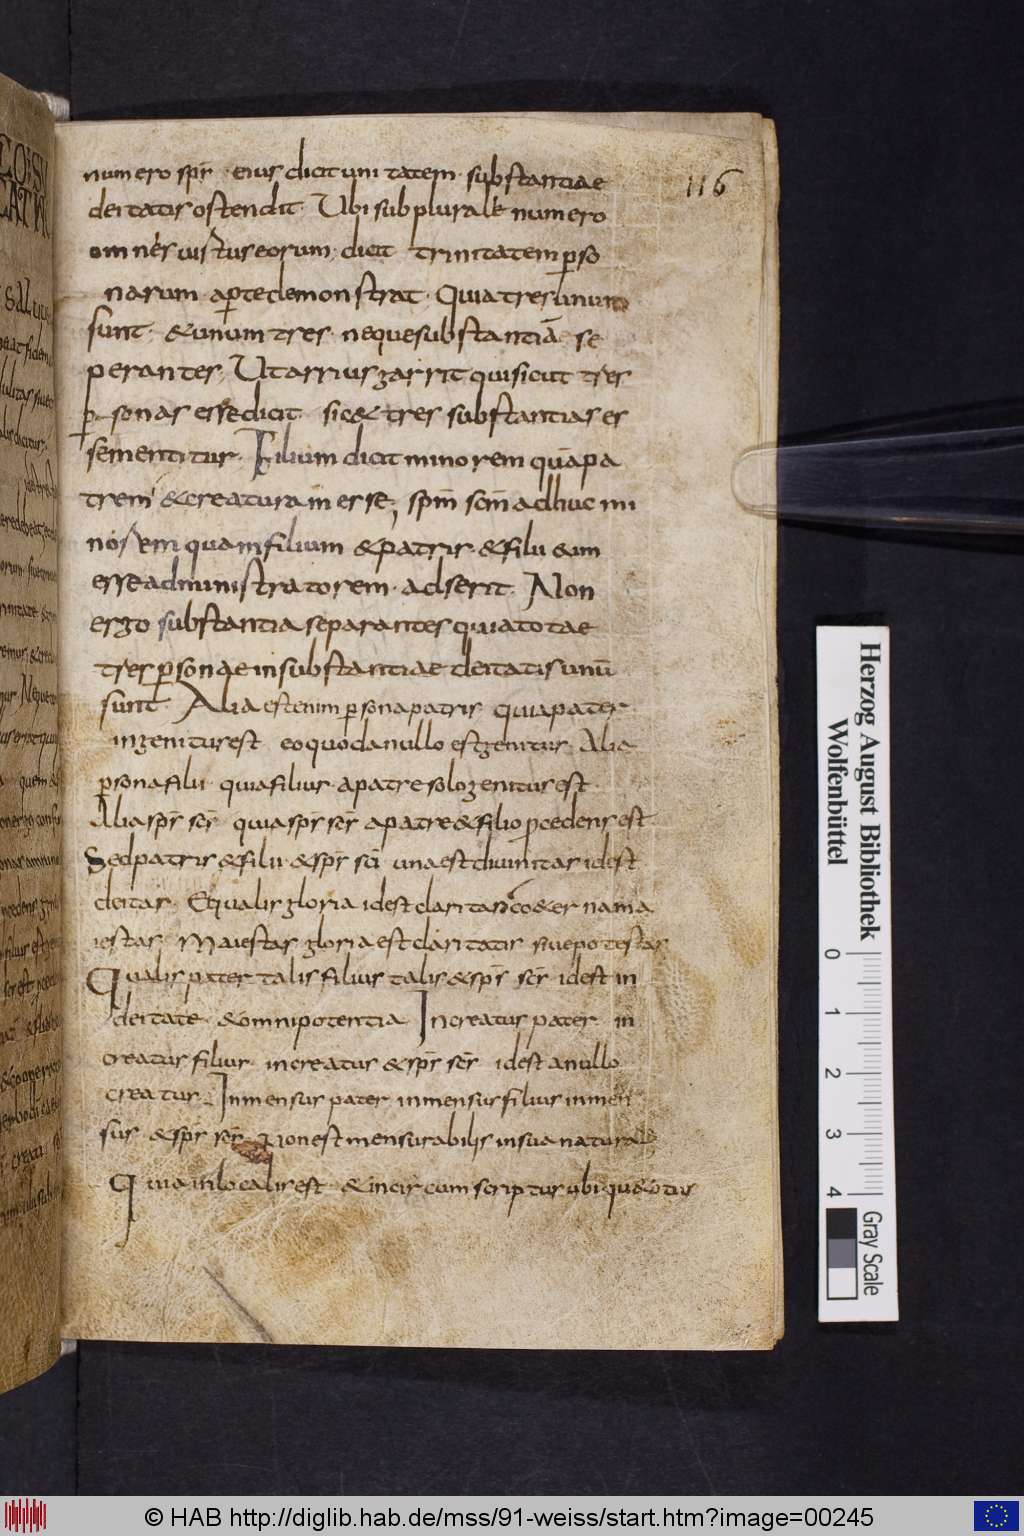 numero spr̄ · eius dicit unitatem · substantiae
deitatis ostendit · Ubi sub plurale numero
omnes uirtus eorum · dicit trinitatem p̱so
narum · ap̱te demonstrat · Quia tres unum
sunt · & unum tres · neque substantiā se
perantes · Ut arrius garrit qui sicut tres
p̱sonas esse dicit sic & tres substantias es
se mentitur · Filium dicit minorem quā pa
trem & creaturam esse, spm̄ scm̄ adhuc mi
norem quam filium & patris · & filii eum
esse administratorem · adserit · Non
ergo substantia separantes quia totae
tres p̱sonae in substantiae deitatis unū
sunt · Alia est enim p̱sona patris quia pater
ingenitus est eo quod a nullo est genitus · Alia
p̱sona filii · quia filius · a patre solo genitus est ·
Alia spr̄ scr̄ quia spr̄ scr̄ a patre & filio p̱cedens est
Sed patris & filii · & spr̄ sci̅ una est diuinitas id est
deitas · Equalis gloria id est claritas co&erna ma
iestas Maiestas gloria est claritatis siue potestas
Qualis pater talis filius talis & spr̄ scr̄ id est in
deitate · & omnipotentia Increatus pater in
creatus filius increatus & spr̄ scr̄ id est a nullo
creatus Inmensus pater inmensus filius inmen
sus & spr̄ scr̄ Non est mensurabilis in sua natura
Quia inlocalis est & incircumscriptus ubique totus
116
Herzog August Bibliothek
Wolfenbüttel
0 1 2 3 4
Gray Scale
© HAB http://diglib.hab.de/mss/91-weiss/start.htm?image=00245